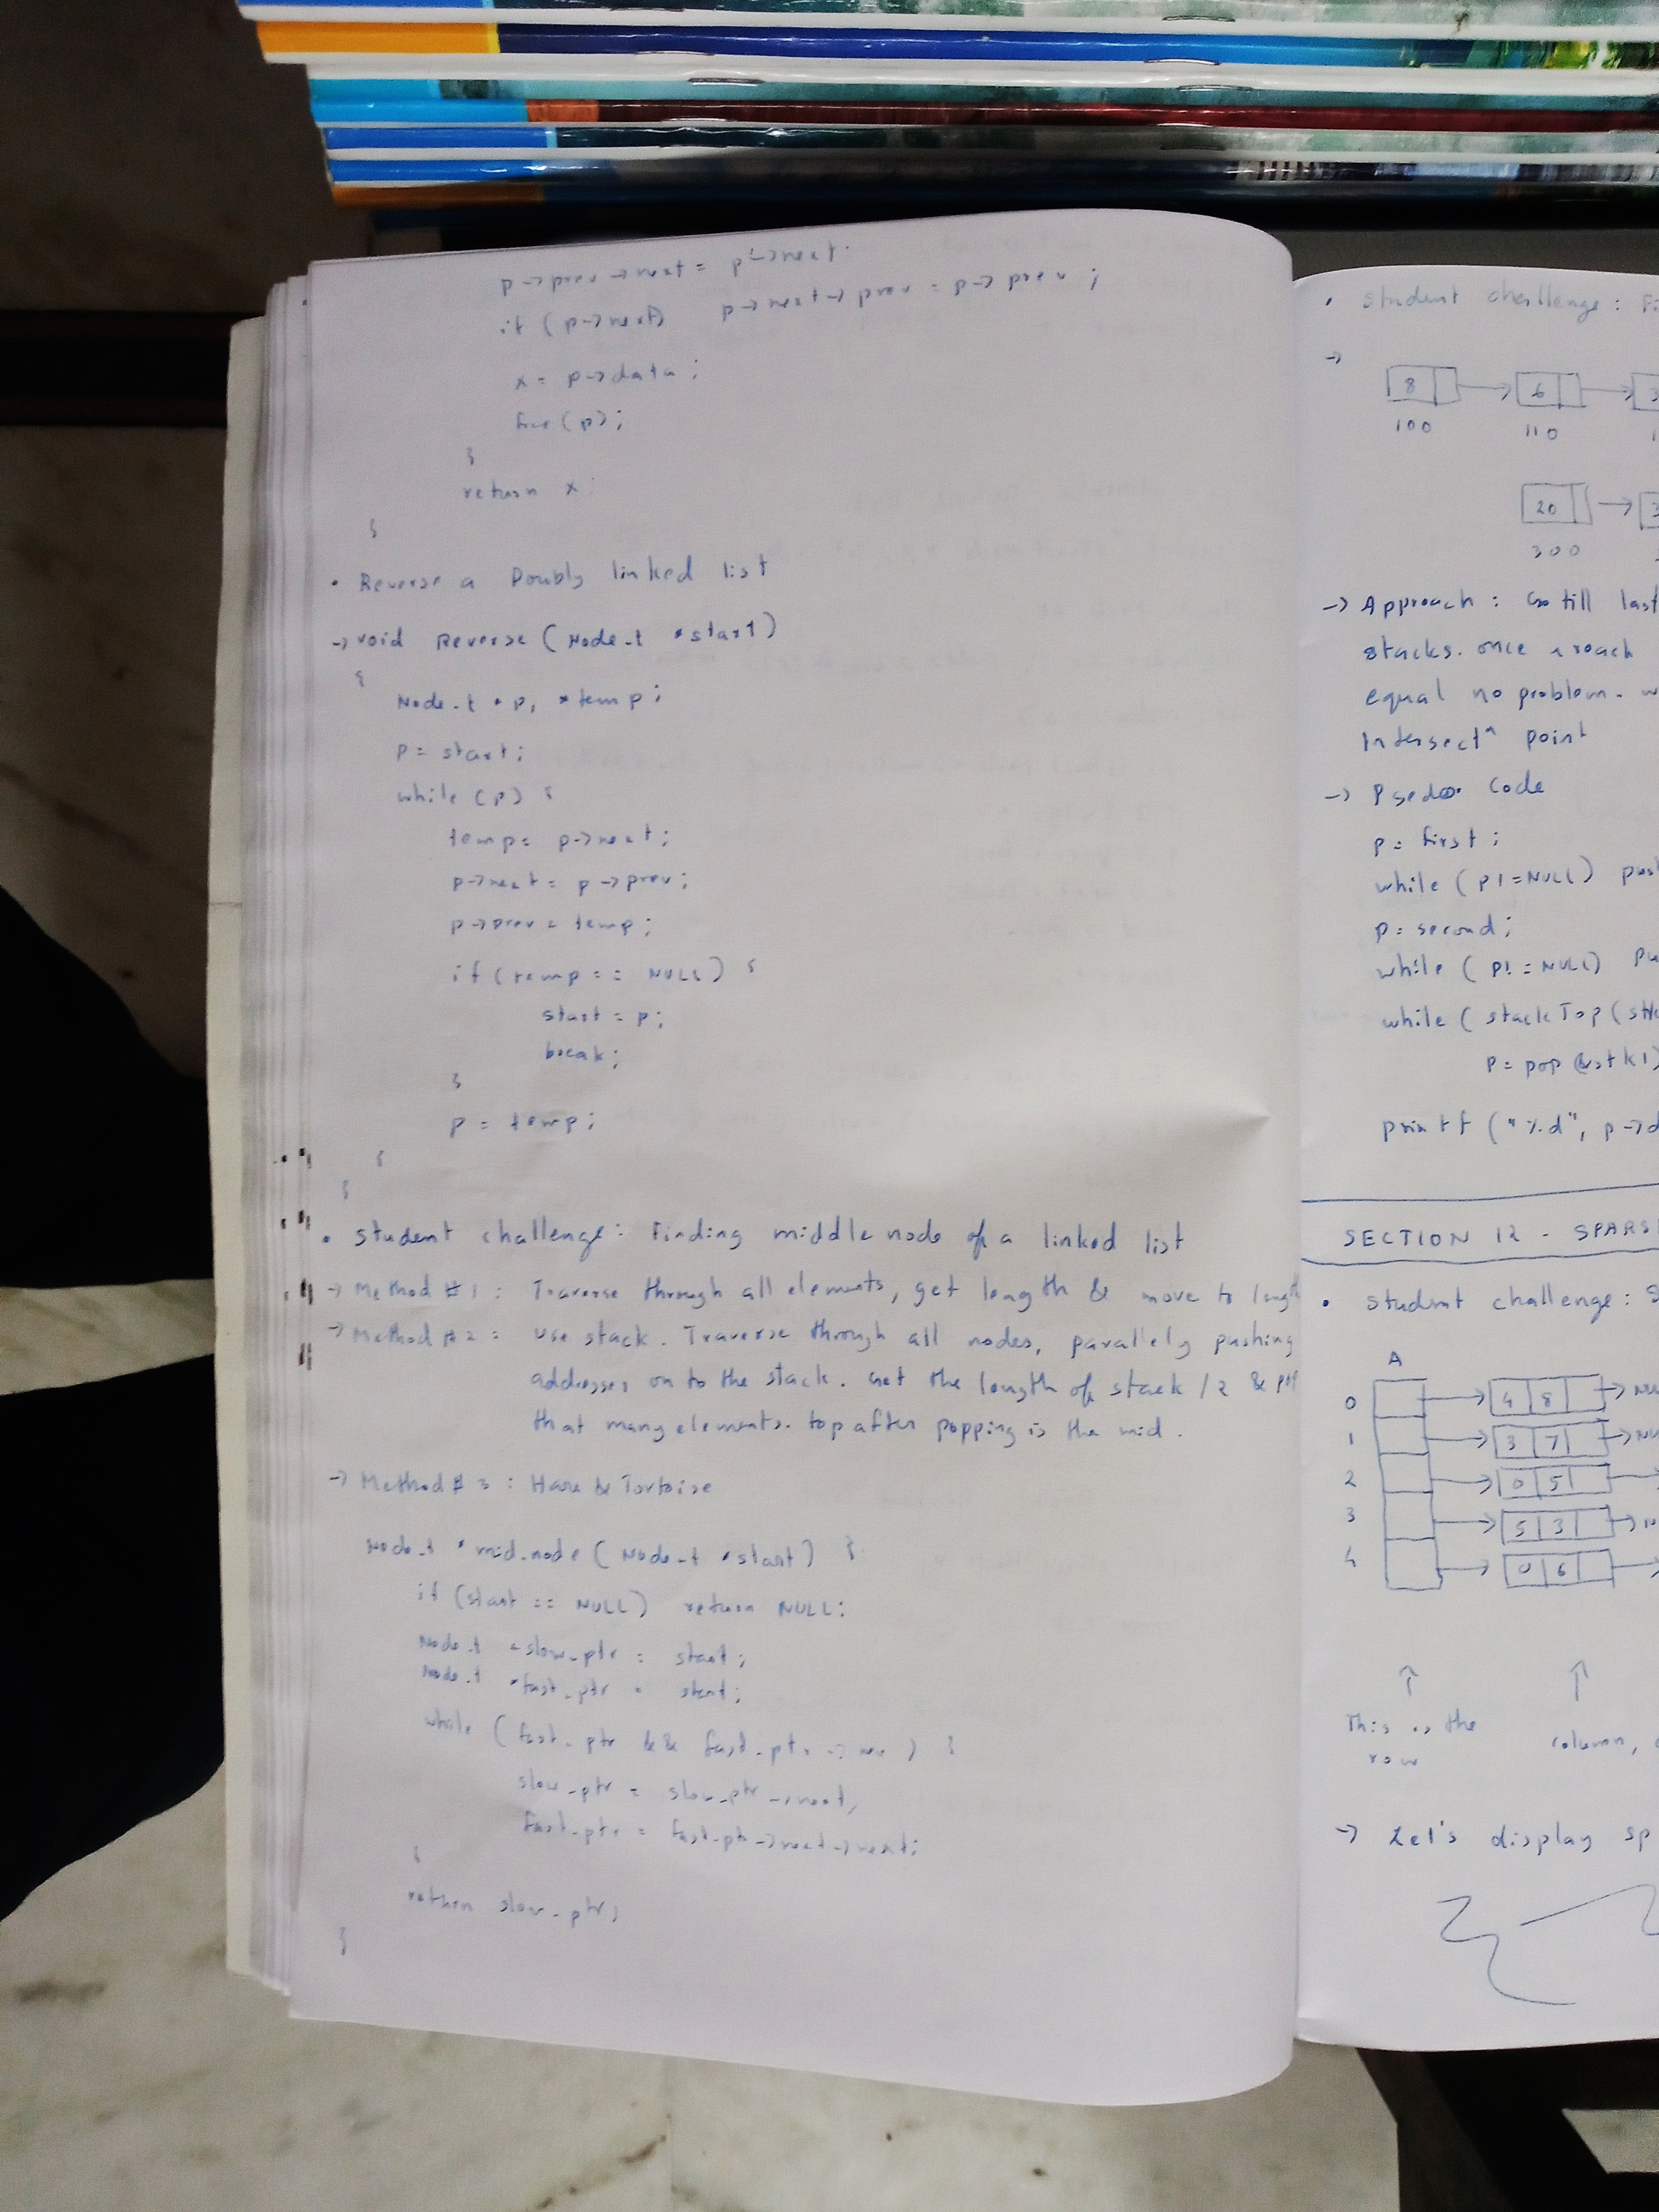 p->prev->next = p->next.
if (p->next) p->next->prev = p->prev ;
x = p->data ;
free(p);
}
return x
}
• Reverse a Doubly linked list
-> void Reverse (Node_t *start)
{
Node_t *p, *temp;
p = start;
while (p) {
temp = p->next;
p->next = p->prev;
p->prev = temp;
if (temp == NULL) {
start = p;
break;
}
p = temp;
}
}
• Student challenge: Finding middle node of a linked list
-> Method #1 : Traverse through all elements, get length & move to length
-> Method #2 : use stack. Traverse through all nodes, parallely pushing
addresses on to the stack. Get the length of stack /2 & pop
that many elements. top after popping is the mid.
-> Method #3 : Hare & Tortoise
Node_t *mid_node (Node_t *start) {
if (start == NULL) return NULL;
Node_t *slow_ptr = start;
Node_t *fast_ptr = start;
while (fast_ptr && fast_ptr->next) {
slow_ptr = slow_ptr->next;
fast_ptr = fast_ptr->next->next;
}
return slow_ptr;
}
• Student challenge : Fi
->
8 -> 6 ->
100 110 1
20 ->
300
-> Approach : Go till last
stacks. once reach
equal no problem.
Intersectn point
-> Psedo Code
p = first ;
while (p!=NULL)
p = second;
while (p!=NULL)
while (stackTop(
p = pop (&stk1)
printf ("%d", p->d
SECTION 12 - SPARS
• Student challenge : S
A
0 -> 4 8 ->
1 -> 3 7 ->
2 -> 0 5 ->
3 -> 5 3 ->
4 -> 0 6 ->
This is the
row
column,
-> Let's display sp